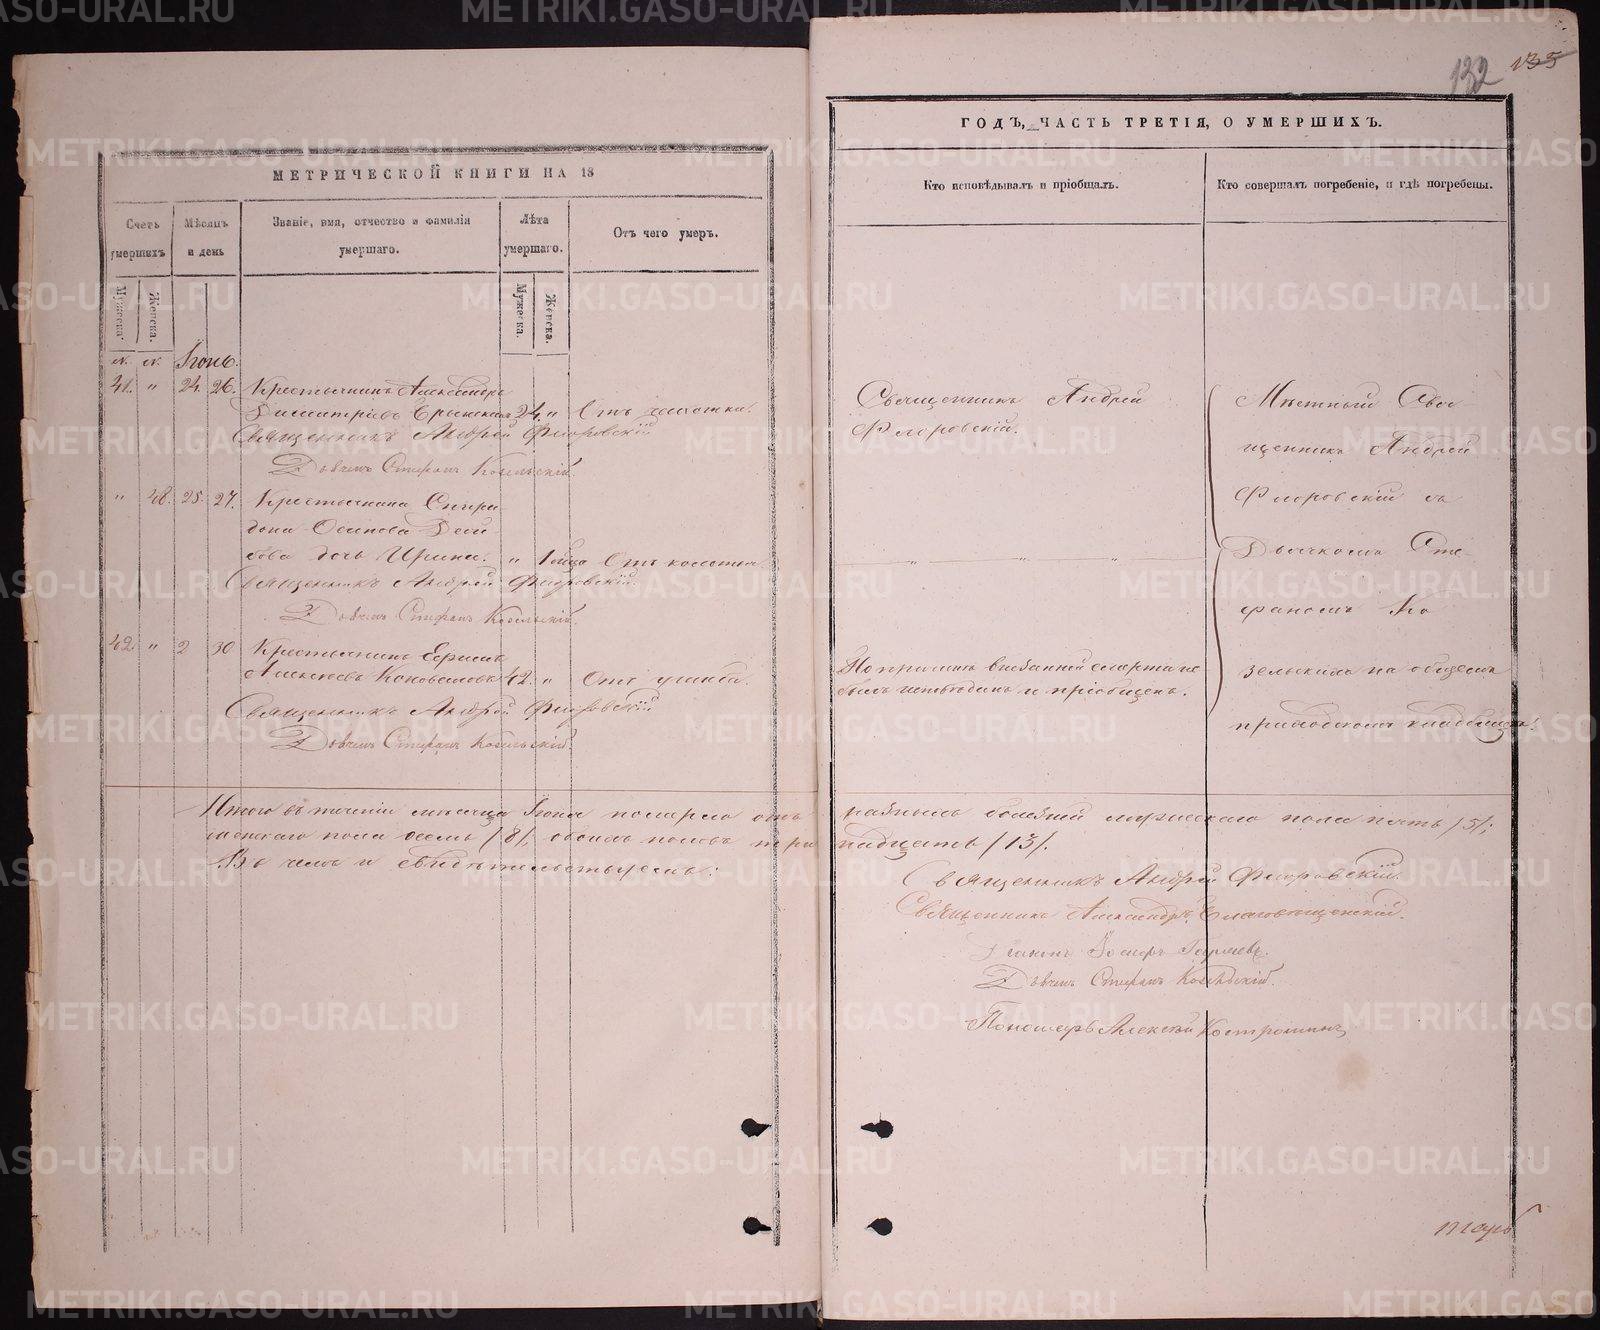 132 135
МЕТРИЧЕСКОЙ КНИГИ НА 18
Счетъ умершихъ
Мѣсяцъ и день
Званіе, имя, отчество и фамилія умершаго.
Лѣта умершаго.
Отъ чего умеръ.
Мужеска.
Женска.
Мужеска.
Женска.
N. N. Іюнь.
41. " 24. 26. Крестьянинъ Александръ
Димитріевъ 24. " Отъ чахотки.
Священникъ Андрей Флоровскій
Дьячекъ Стефанъ Козельскій
" 48. 25. 27. Крестьянина Спири-
дона Осипова
дочь Ирина. " Отъ колотья.
Священникъ Андрей Флоровскій.
Дьячекъ Стефанъ Козельскій.
42. " 2 30 Крестьянинъ
Алексѣевъ Коноваловъ 42. " Отъ ушиба.
Священникъ Андрей Флоровскій
Дьячекъ Стефанъ Козельскій.
Итого въ теченіи мѣсяца Іюня померло отъ
женскаго пола осемь /8/, обоихъ половъ три
Въ чемъ и свидѣтельствуемъ:
ГОДЪ, ЧАСТЬ ТРЕТІЯ, О УМЕРШИХЪ.
Кто исповѣдывалъ и пріобщалъ.
Кто совершалъ погребеніе, и гдѣ погребены.
Священникъ Андрей
Флоровскій.
" " "
По причинѣ внезапной смерти не
былъ исповѣданъ и пріобщенъ.
Мѣстный Свя-
щенникъ Андрей
Флоровскій съ
Дьячкомъ Сте-
фаномъ Ко
зельскимъ на общемъ
приходскомъ кладбищѣ.
разныхъ болѣзней мужескаго пола пять /5/;
надцать /13/.
Священникъ Андрей Флоровскій.
Священникъ Александръ Благовѣщенскій.
Діаконъ Іосифъ
Дьячекъ Стефанъ Козельскій.
Пономарь Алексѣй Костроминъ
METRIKI.GASO-URAL.RU